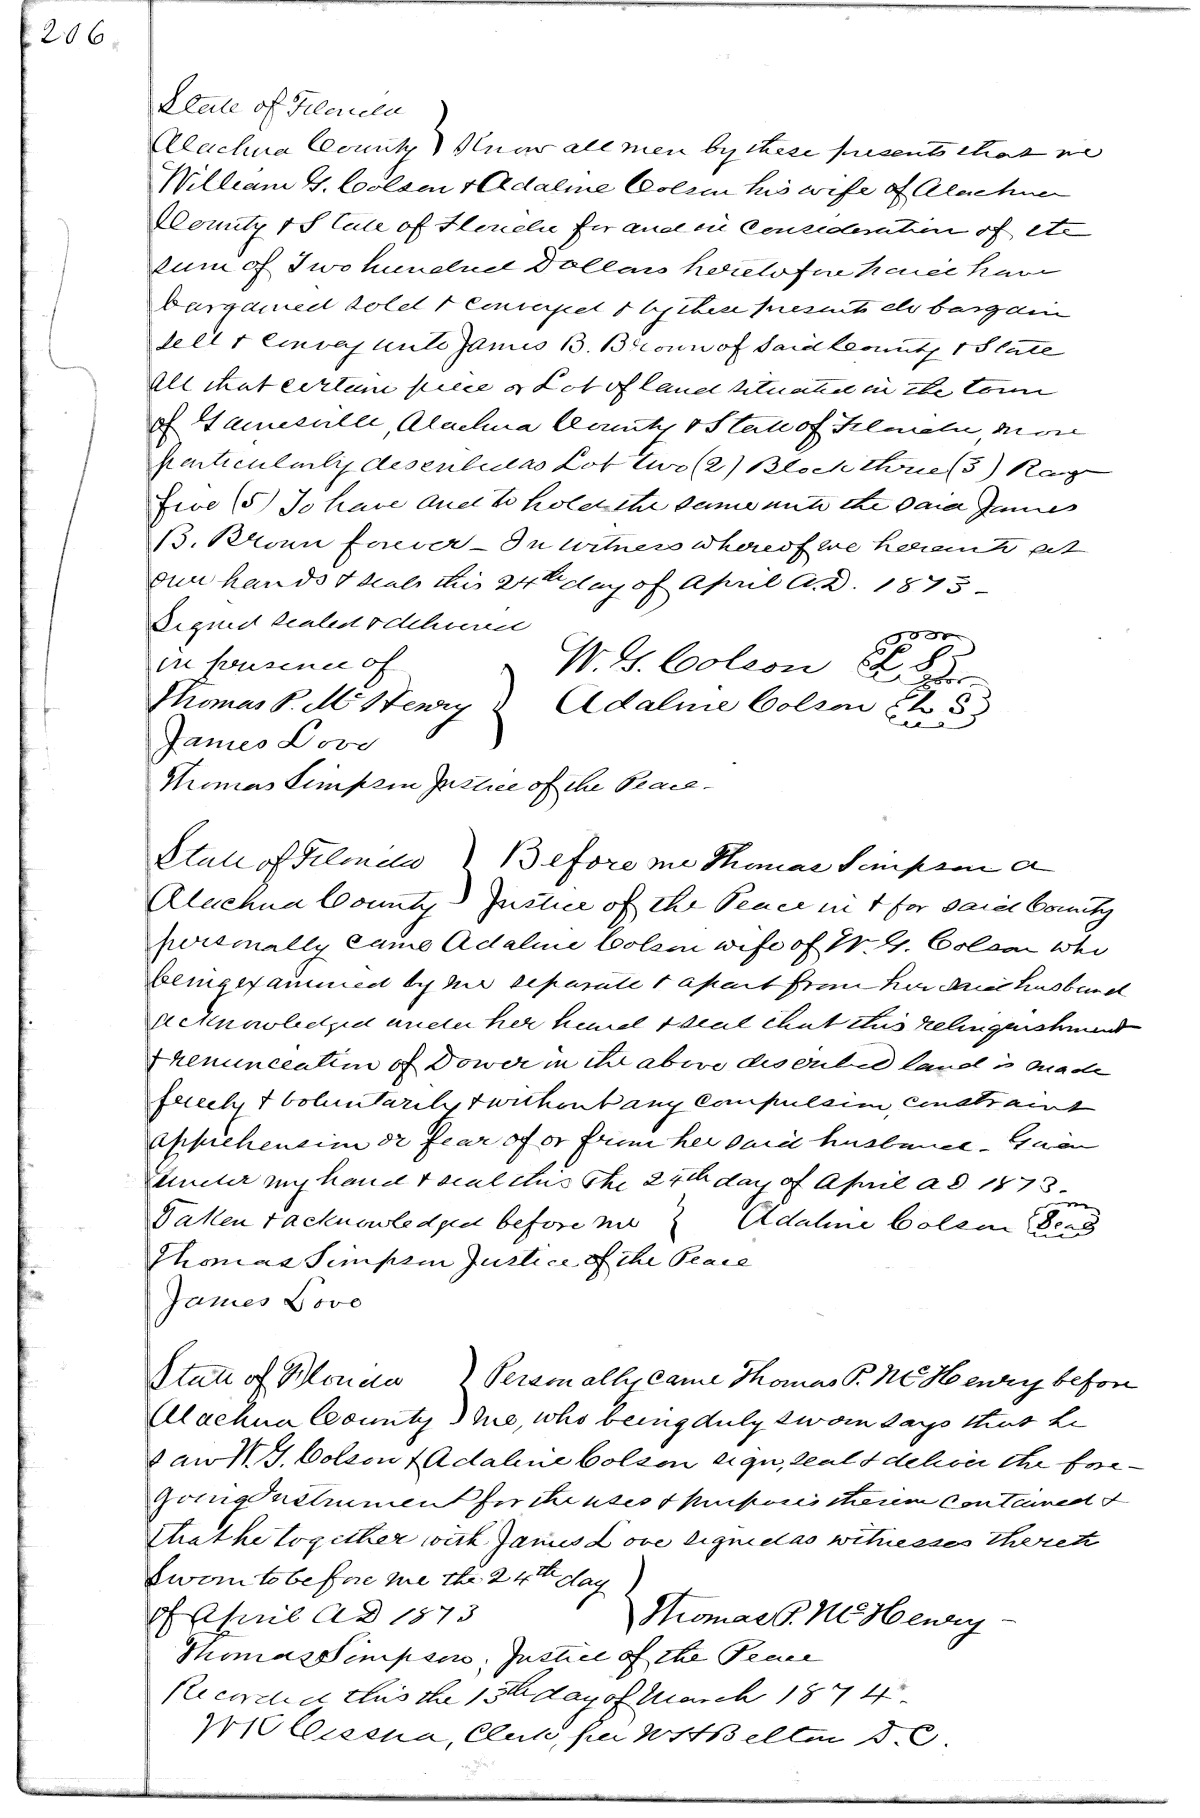 206
State of Florida
Alachua County } Know all men by these presents that we
William G. Colson & Adaline Colson his wife of Alachua
County & State of Florida for and in consideration of the
sum of Two hundred Dollars heretofore paid have
bargained sold & conveyed & by these presents do bargain
sell & convey unto James B. Brown of said County & State
all that certain piece or Lot of land situated in the town
of Gainesville, Alachua County & State of Florida, more
particularly described as Lot two (2) Block three (3) Range
five (5) To have and to hold the same unto the said James
B. Brown forever - In witness whereof we hereunto set
our hands & seals this 24th day of April A.D. 1873 -
Signed sealed & delivered
in presence of } W. G. Colson L S
Thomas P. McHenry } Adaline Colson L S
James Love
Thomas Simpson Justice of the Peace -
State of Florida } Before me Thomas Simpson a
Alachua County } Justice of the Peace in & for said County
personally came Adaline Colson wife of W. G. Colson who
being examined by me separate & apart from her said husband
acknowledged under her hand & seal that this relinquishment
& renunciation of Dower in the above described land is made
freely & voluntarily & without any compulsion, constraint
apprehension or fear of or from her said husband - Given
under my hand & seal this the 24th day of April AD 1873 -
Taken & acknowledged before me } Adaline Colson Seal
Thomas Simpson Justice of the Peace
James Love
State of Florida } Personally came Thomas P. McHenry before
Alachua County } me, who being duly sworn says that he
saw W. G. Colson & Adaline Colson sign, seal & deliver the fore-
going Instrument for the uses & purposes therein contained &
that he together with James Love signed as witnesses thereto
Sworn to before me the 24th day
of April AD 1873 } Thomas P. McHenry -
Thomas Simpson, Justice of the Peace
Recorded this the 13th day of March 1874 -
W K Cessna, Clerk, per W H Belton D. C.